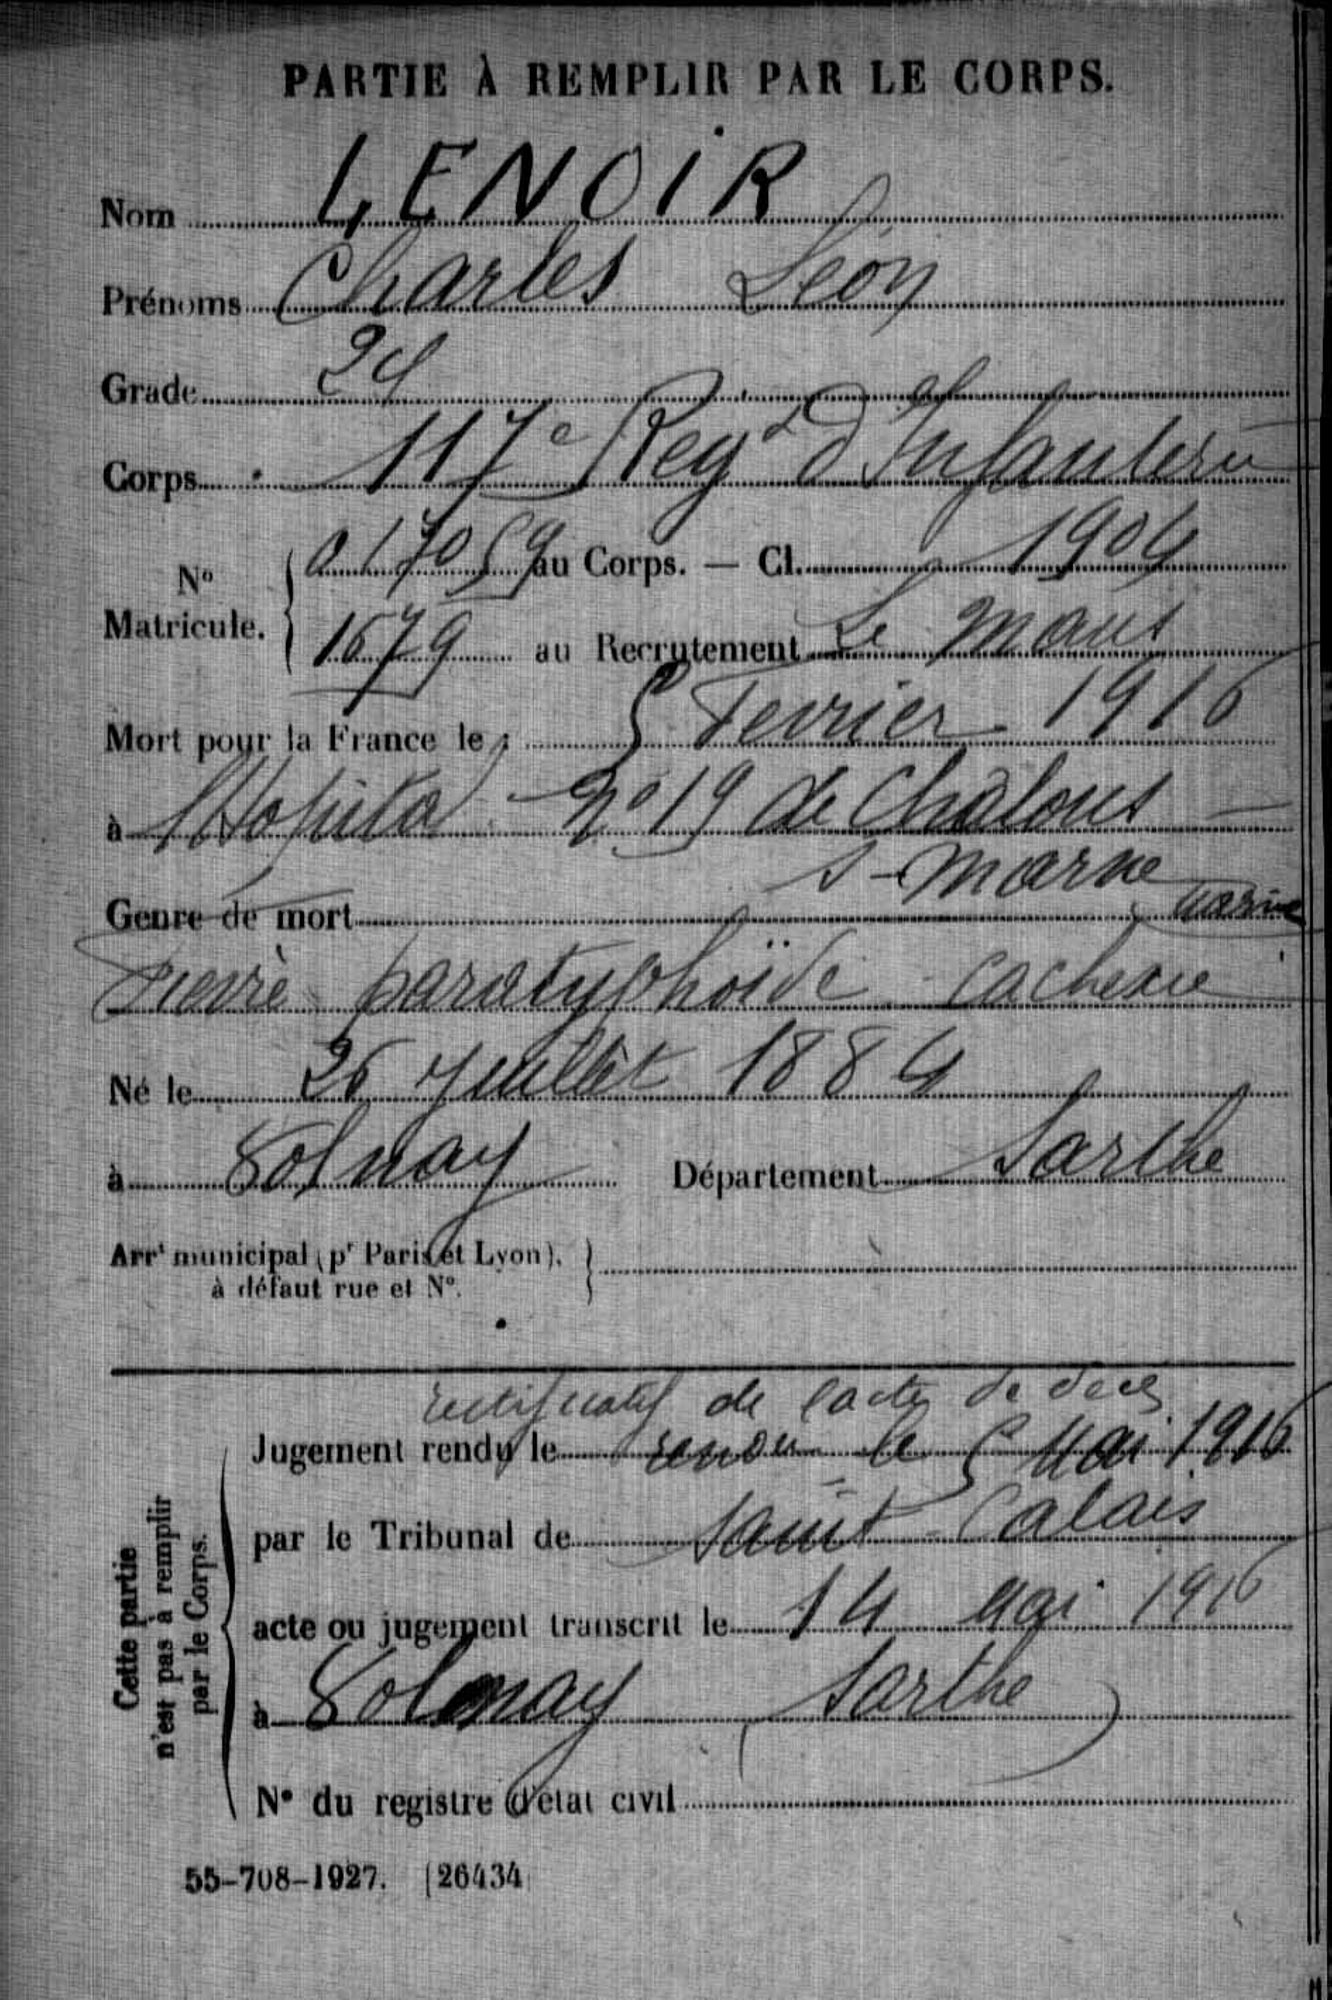 PARTIE À REMPLIR PAR LE CORPS.
Nom LENOIR
Prénoms Charles Léon
Grade 2 cl
Corps 117e Regt d'Infanterie
No Matricule. 017059 au Corps. — Cl. 1904
1679 au Recrutement Le Mans
Mort pour la France le 5 Fevrier 1916
à l'Hopital No 19 de Chalons
s-Marne Marne
Genre de mort
Fievre paratyphoïde cachexie
Né le 26 Juillet 1884
à Volnay Département Sarthe
Arrt municipal (pr Paris et Lyon),
à défaut rue et No.
rectificatif de l'acte de deces
Jugement rendu le rendu le 5 Mai 1916
par le Tribunal de Saint-Calais
acte ou jugement transcrit le 14 Mai 1916
à Volnay (Sarthe)
No du registre d'état civil
Cette partie
n'est pas à remplir
par le Corps.
55-708-1927. [26434